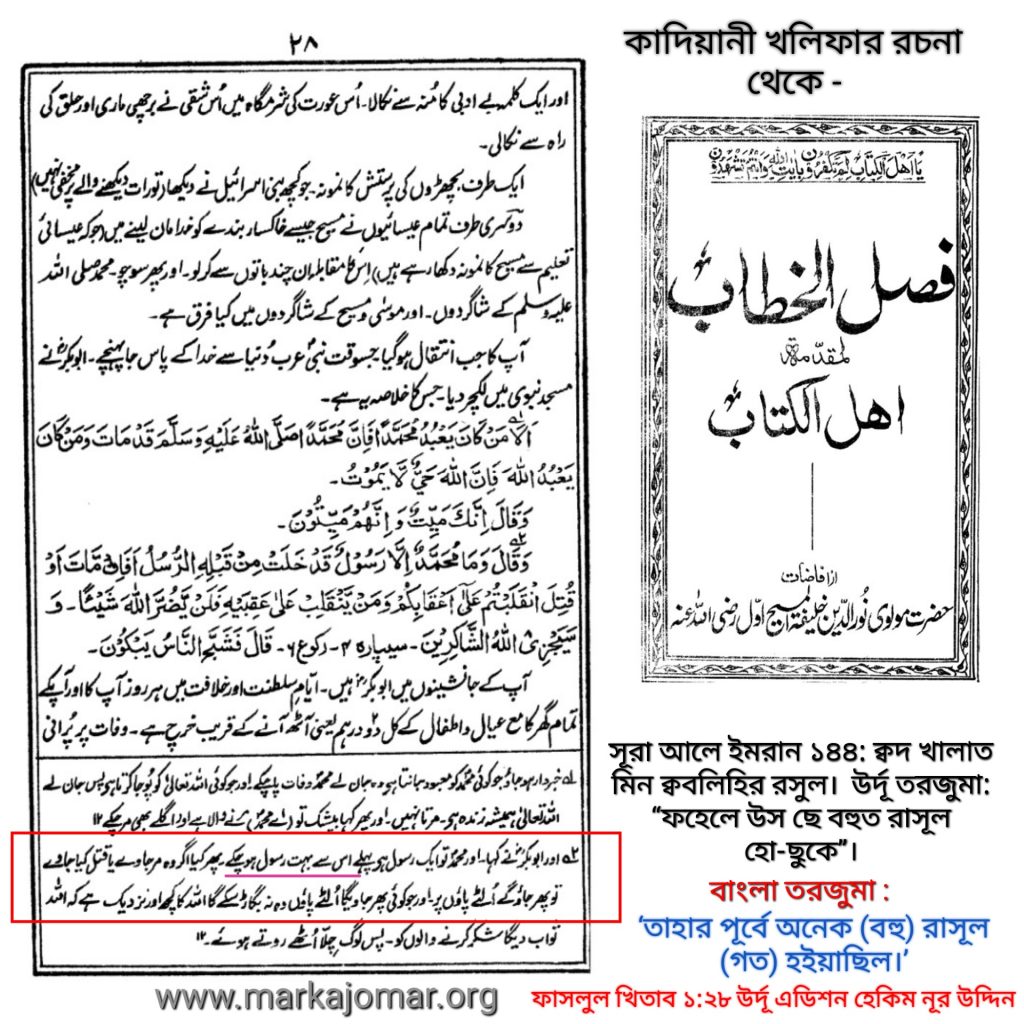 ۲۸
اور ایک کلمہ بے ادبی کا مُنہ سے نکالا۔ اُس عورت کی شرمگاہ میں اُس شقی نے برچھی ماری اور حلق کی
راہ سے نکالی۔
ایک طرف بچھڑوں کی پرستش کا نمونہ۔ جو کچھ بنی اسرائیل نے دیکھا (تورات دیکھنے والے پر مخفی نہیں)
دوسری طرف تمام عیسائیوں نے مسیح جیسے خاکسار بندے کو خدا مان لینے میں (جو کہ عیسائی
تعلیم سے مسیح کا نمونہ دکھا رہے ہیں) اِس کا مقابلہ ان چند باتوں سے کر لو۔ اور پھر سوچو۔ محمد صلی اللہ
علیہ وسلم کے شاگردوں۔ اور موسٰی و مسیح کے شاگردوں میں کیا فرق ہے۔
آپ کا جب انتقال ہو گیا جسوقت نبیٔ عرب دُنیا سے خدا کے پاس جا پہنچے۔ ابوبکرؓ نے
مسجد نبوی میں لکچر دیا۔ جس کا خلاصہ یہ ہے۔
اَلَا مَنْ كَانَ يَعْبُدُ مُحَمَّدًا فَاِنَّ مُحَمَّدًا صَلَّى اللهُ عَلَيْهِ وَسَلَّمَ قَدْ مَاتَ وَمَنْ كَانَ
يَعْبُدُ اللهَ فَاِنَّ اللهَ حَيٌّ لَّا يَمُوْتُ۔
وَقَالَ اِنَّكَ مَيِّتٌ وَاِنَّهُمْ مَيِّتُوْنَ۔
وَقَالَ وَمَا مُحَمَّدٌ اِلَّا رَسُوْلٌ قَدْ خَلَتْ مِنْ قَبْلِهِ الرُّسُلُ اَفَاِنْ مَّاتَ اَوْ
قُتِلَ انْقَلَبْتُمْ عَلٰٓى اَعْقَابِكُمْ وَمَنْ يَّنْقَلِبْ عَلٰى عَقِبَيْهِ فَلَنْ يَّضُرَّ اللهَ شَيْئًا۔ وَ
سَيَجْزِى اللهُ الشَّاكِرِيْنَ۔ سیپارہ ۴۔ رکوع ۶۔ قَالَ فَنَشَجَ النَّاسُ يَبْكُوْنَ۔
آپ کے جانشینوں میں ابوبکرؓ ہیں۔ ایام سلطنت اور خلافت میں ہر روز آپ کا اور آپکے
تمام گھر کا مع عیال و اطفال کے کل دو درہم یعنی آٹھ آنے کے قریب خرچ ہے۔ وفات پر پُرانی
۱؎ خبردار ہو جاؤ جو کوئی محمدؐ کو معبود جانتا ہو وہ جان لے محمدؐ وفات پا چکے۔ اور جو کوئی اللہ تعالٰی کو پُوجا کرتا ہو پس جان لے
اللہ تعالٰی ہمیشہ زندہ ہو۔ مرتا نہیں۔ اور پھر کہا بیشک تو (اے محمدؐ) مرنے والا ہے اور اگلے بھی مر چکے ۱۲
۲؎ اور ابوبکرؓ نے کہا۔ اور محمدؐ تو ایک رسول ہو پہلے اس سے بہت رسول ہو چکے۔ پھر کیا اگر وہ مر جاوے یا قتل کیا جاوے
تو پھر جاؤ گے اُلٹے پاؤں پر۔ اور جو کوئی پھر جاویگا اُلٹے پاؤں وہ نہ بگاڑ سکے گا اللہ کا کچھ اور نزدیک ہے کہ اللہ
ثواب دیگا شکر کرنے والوں کو۔ پس لوگ چِلّا اُٹھے روتے ہوئے۔ ۱۲
www.markajomar.org
কাদিয়ানী খলিফার রচনা
থেকে -
يا اهل الكتاب لم تكفرون بايت الله وانتم تشهدون
فصل الخطاب
لمقدمۃ
اهل الكتاب
از افاضات
حضرت مولوی نور الدین خلیفۃ المسیح اوّل رضی اللہ عنہ
সূরা আলে ইমরান ১৪৪: ক্বদ খালাত
মিন ক্ববলিহির রসুল। উর্দূ তরজুমা:
“ফহেলে উস ছে বহুত রাসূল
হো-ছুকে”।
বাংলা তরজুমা :
‘তাহার পূর্বে অনেক (বহু) রাসূল
(গত) হইয়াছিল।’
ফাসলুল খিতাব ১:২৮ উর্দূ এডিশন হেকিম নূর উদ্দিন